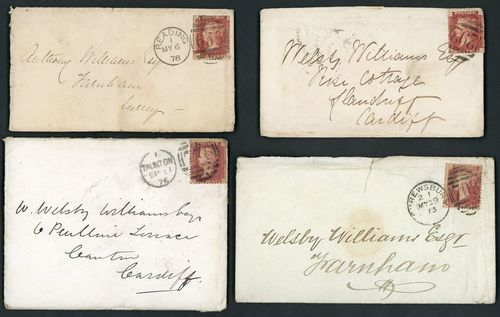 READING
1
MY 6
78
Anthony Williams Esq
Farnham
Surrey
Welsby Williams Esq
Rise Cottage
Llandaff
Cardiff
TAUNTON
1
76
W. Welsby Williams Esqr
6 Terrace
Canton
Cardiff.
SHREWSBURY
2 1
MY 29
73
Welsby Williams Esqr
Farnham